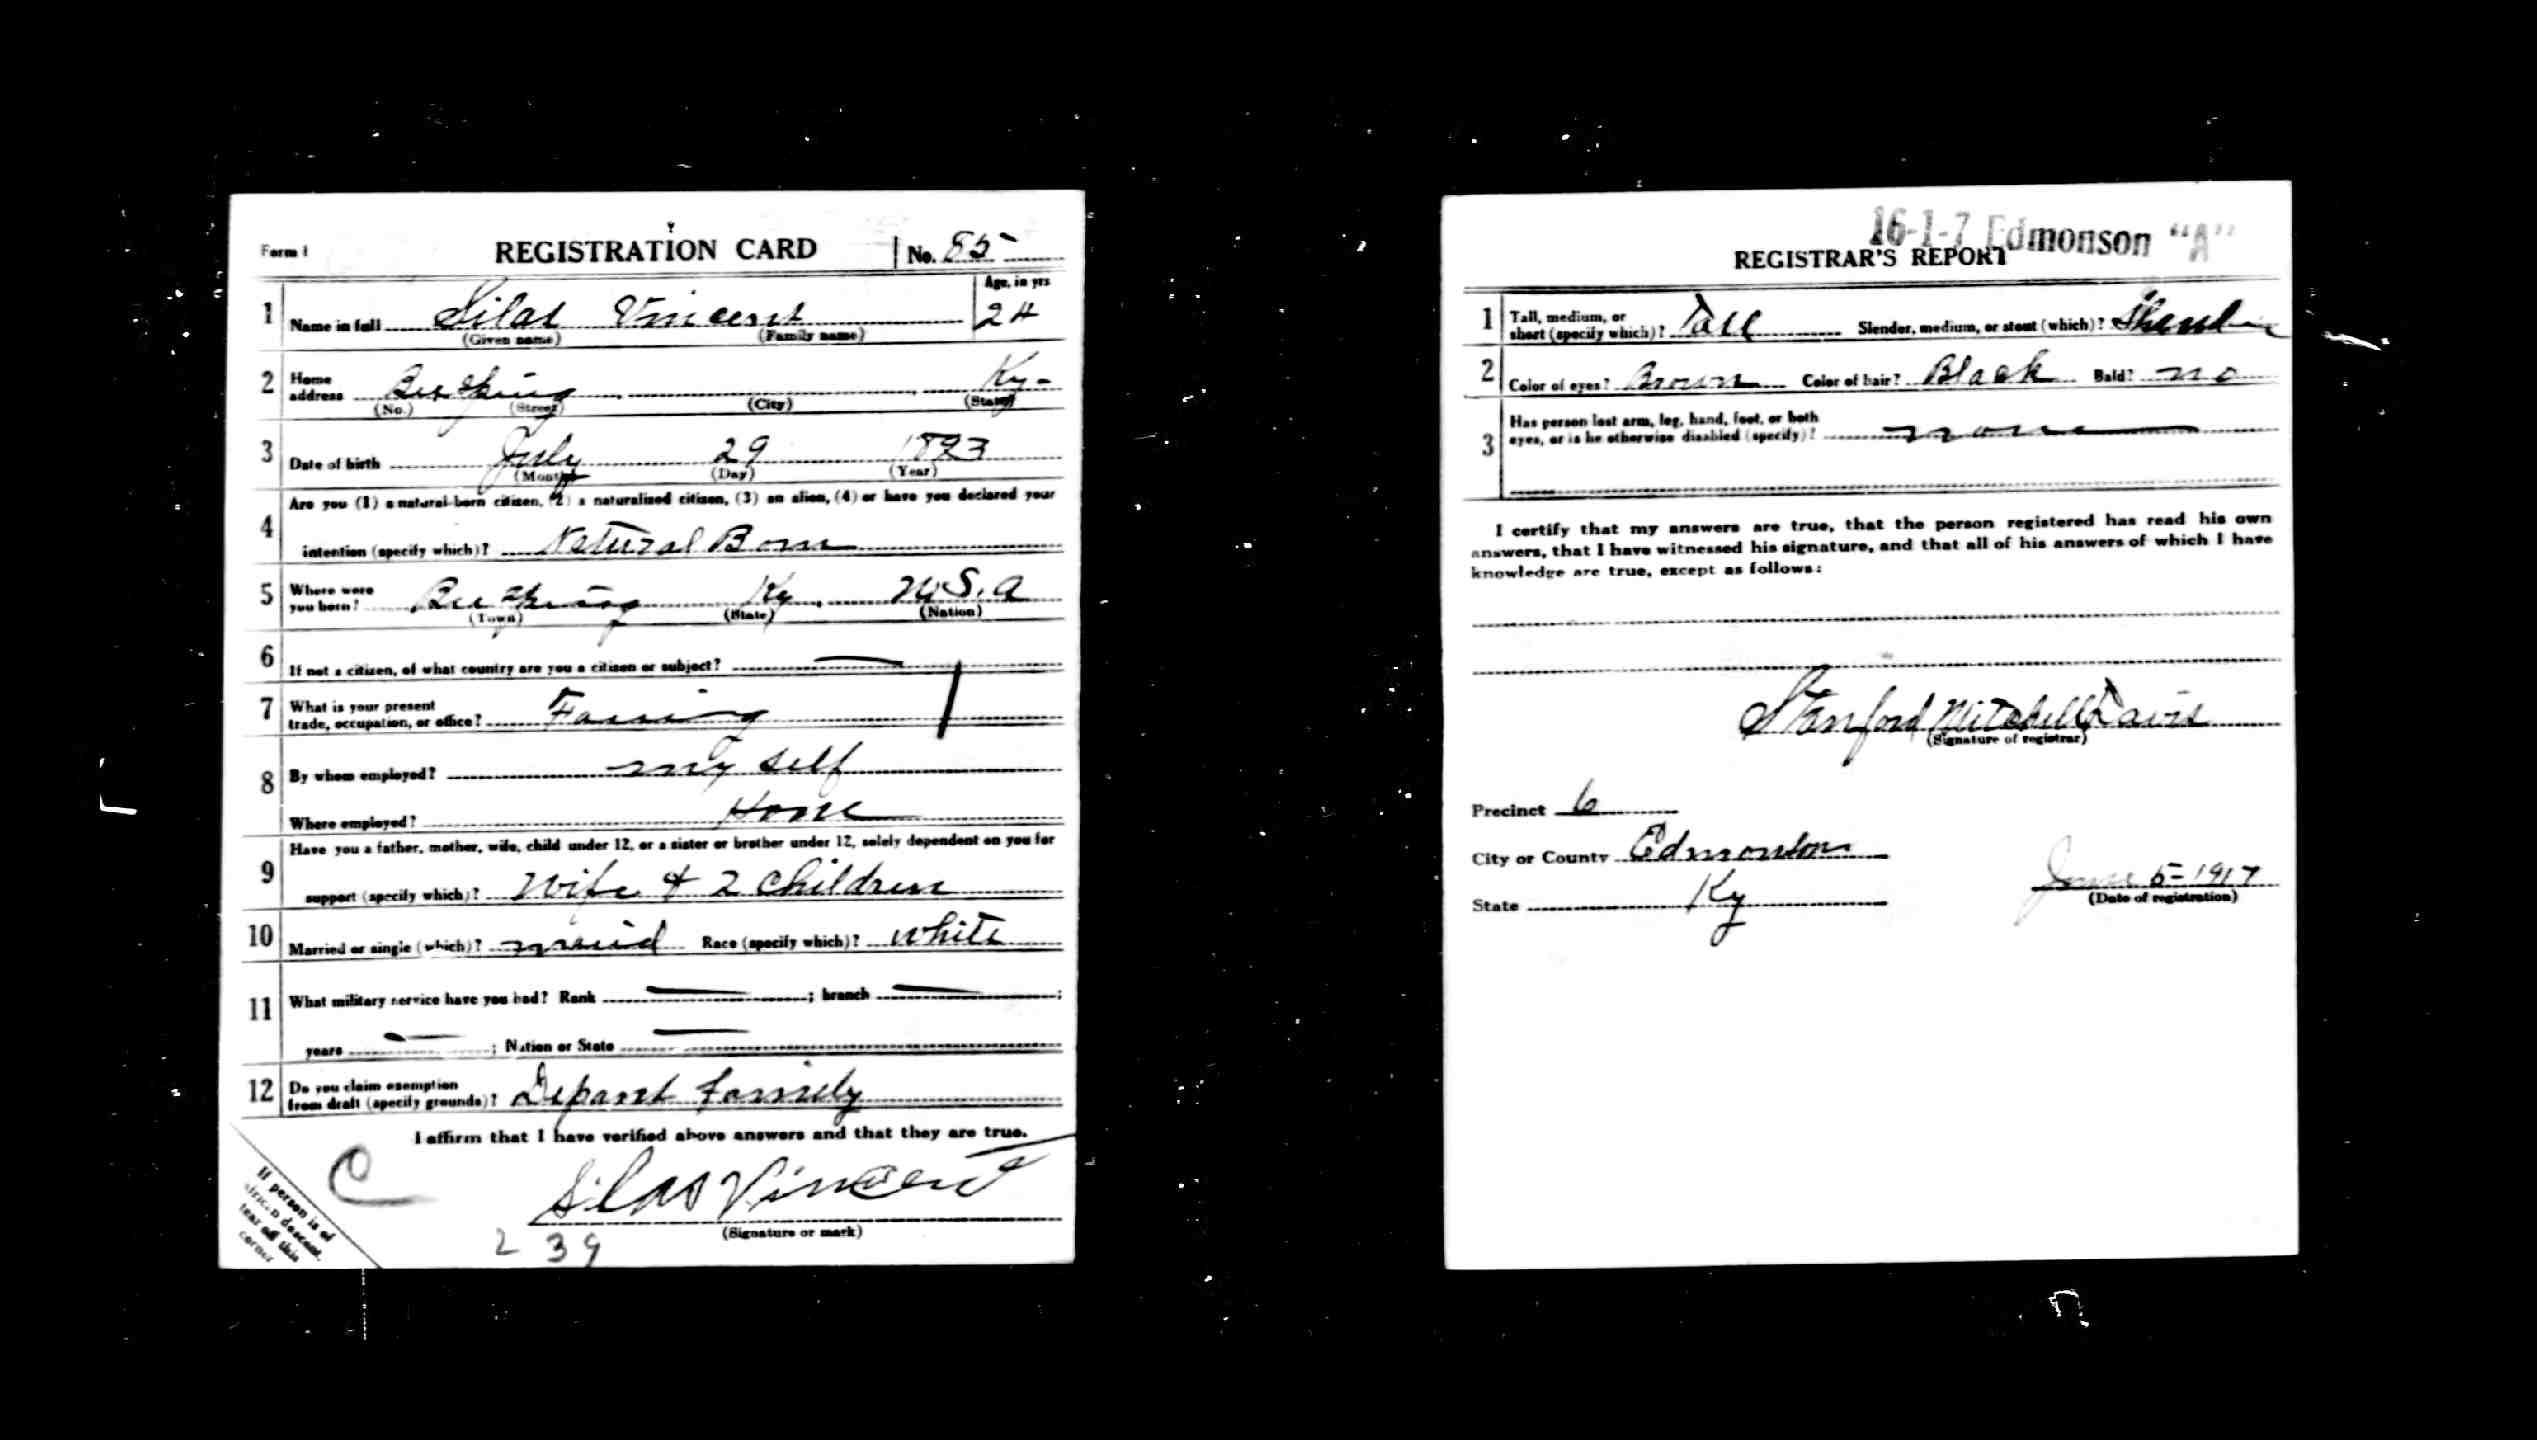 Form 1
REGISTRATION CARD No. 85
Age, in yrs
1 Name in full Silas Vincent 24
(Given name) (Family name)
2 Home address Bee Spring Ky-
(No.) (Street) (City) (State)
3 Date of birth July 29 1893
(Month) (Day) (Year)
Are you (1) a natural-born citizen, (2) a naturalized citizen, (3) an alien, (4) or have you declared your
4 intention (specify which)? Natural Born
5 Where were you born? Bee Spring Ky, U.S.A
(Town) (State) (Nation)
6 If not a citizen, of what country are you a citizen or subject? —
7 What is your present trade, occupation, or office? Faring
8 By whom employed? my self
Where employed? Home
Have you a father, mother, wife, child under 12, or a sister or brother under 12, solely dependent on you for
9 support (specify which)? Wife & 2 children
10 Married or single (which)? Race (specify which)? white
11 What military service have you had? Rank — ; branch — ;
years — ; Nation or State —
12 Do you claim exemption from draft (specify grounds)? Depant family
I affirm that I have verified above answers and that they are true.
C
Silas Vincent
(Signature or mark)
2 39
If person is of
descent,
tear off this
corner
16-1-7 Edmonson "A"
REGISTRAR'S REPORT
1 Tall, medium, or short (specify which)? Tall Slender, medium, or stout (which)?
2 Color of eyes? Brown Color of hair? Black Bald? no
3 Has person lost arm, leg, hand, foot, or both eyes, or is he otherwise disabled (specify)? none
I certify that my answers are true, that the person registered has read his own
answers, that I have witnessed his signature, and that all of his answers of which I have
knowledge are true, except as follows:
Stanford Mitchell Davis
(Signature of registrar)
Precinct 6
City or County Edmonson
State Ky
June 5-1917
(Date of registration)